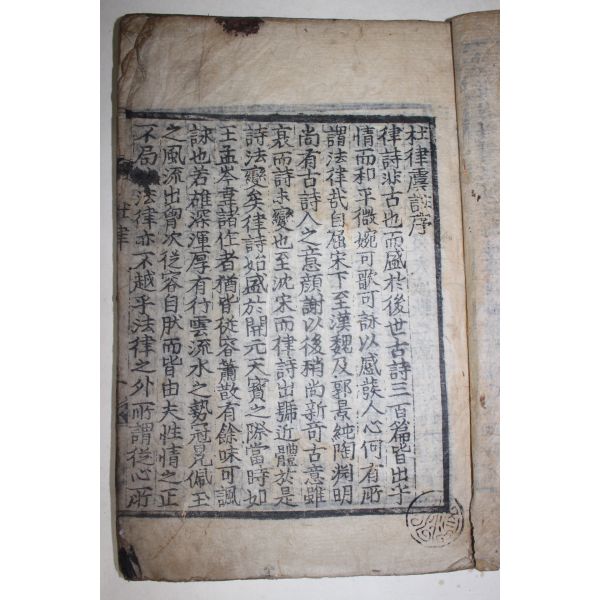 杜律虞註序
律詩非古也而盛於後世古詩三百篇皆出乎
情而和平微婉可歌可詠以感發人心何有所
謂法律哉自屈宋下至漢魏及郭景純陶淵明
尚有古詩人之意顔謝以後稍尚新奇古意雖
衰而詩未變也至沈宋而律詩出號近體於是
詩法變矣律詩始盛於開元天寶之際當時如
王孟岑韋諸作者猶皆從容蕭散有餘味可諷
詠也若雄深渾厚有行雲流水之勢冠冕佩玉
之風流出胷次從容自肰而皆由夫性情之正
不局 法律亦不越乎法律之外所謂從心所
杜律